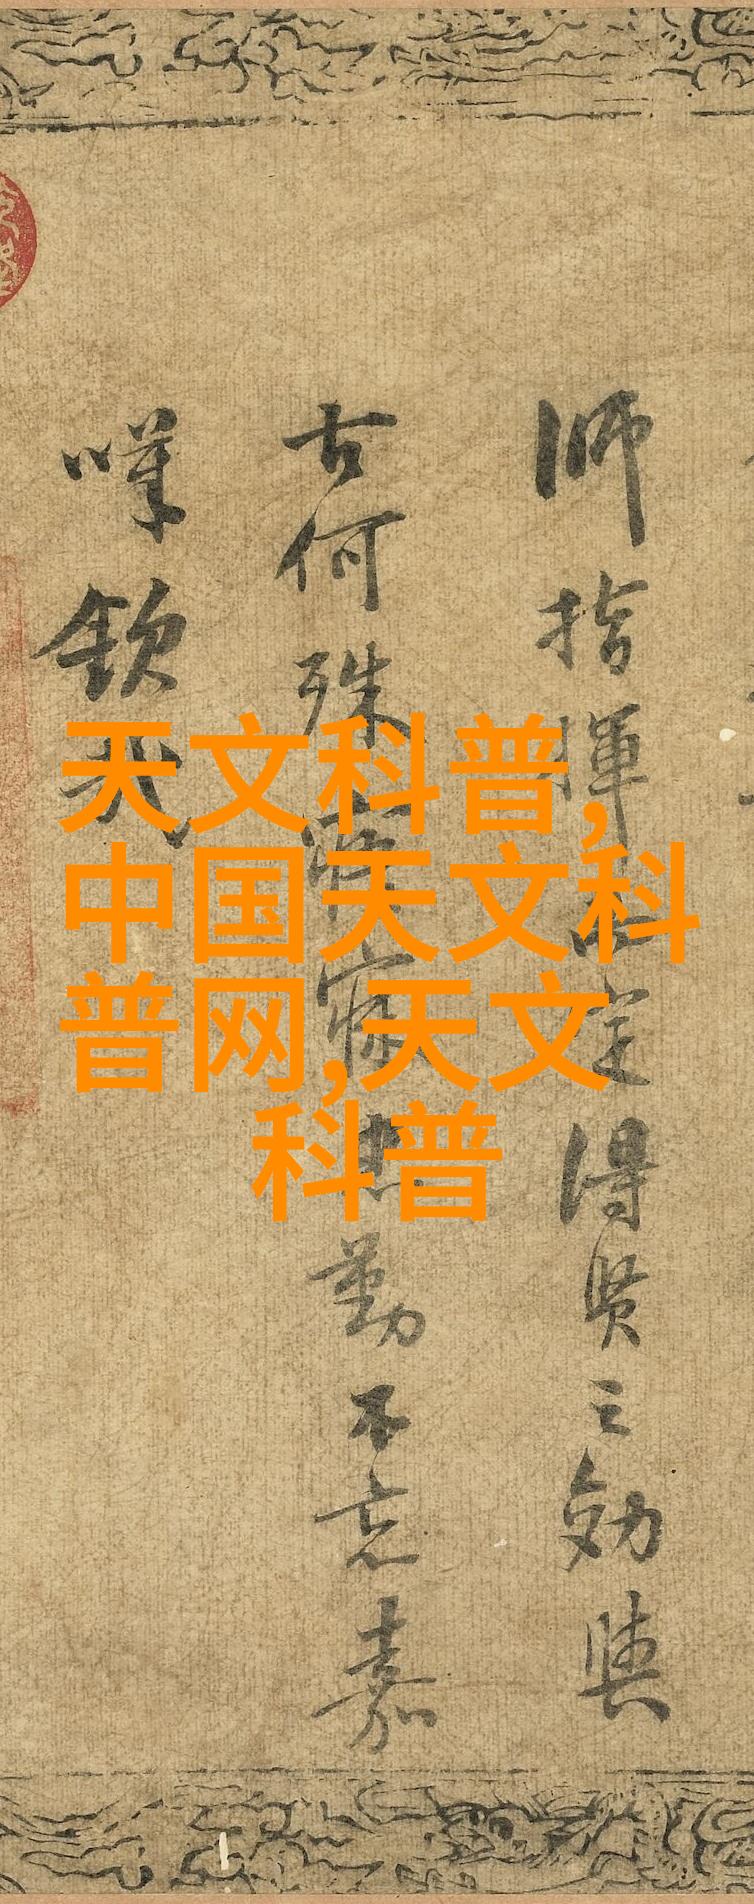 师指挥
定得贤之効与
古何殊
寐思勤不忘嘉
嘆钦哉
天文科普,
中国天文科
普网,天文
科普